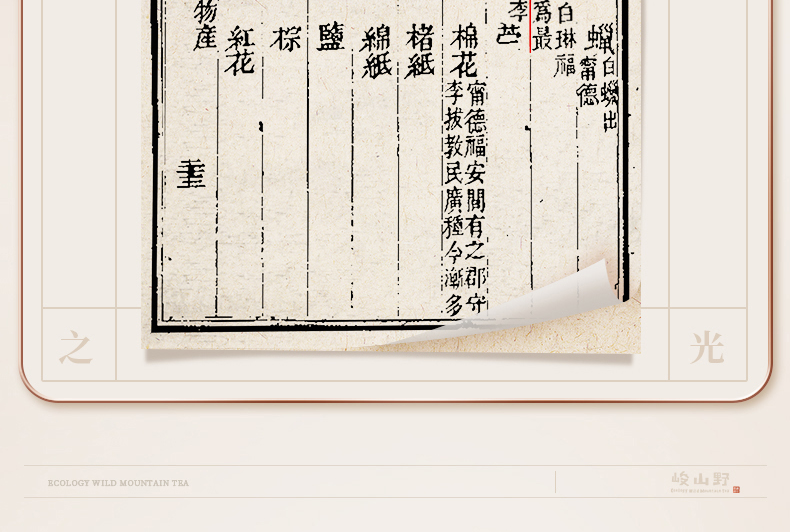 蠟
白蠟出
寗德
白琳福
爲最
李
棉花
寗德福安間有之郡守
李拔教民廣種今漸多
楮紙
綿紙
鹽
棕
紅花
物産
之
光
ECOLOGY WILD MOUNTAIN TEA
峻山野